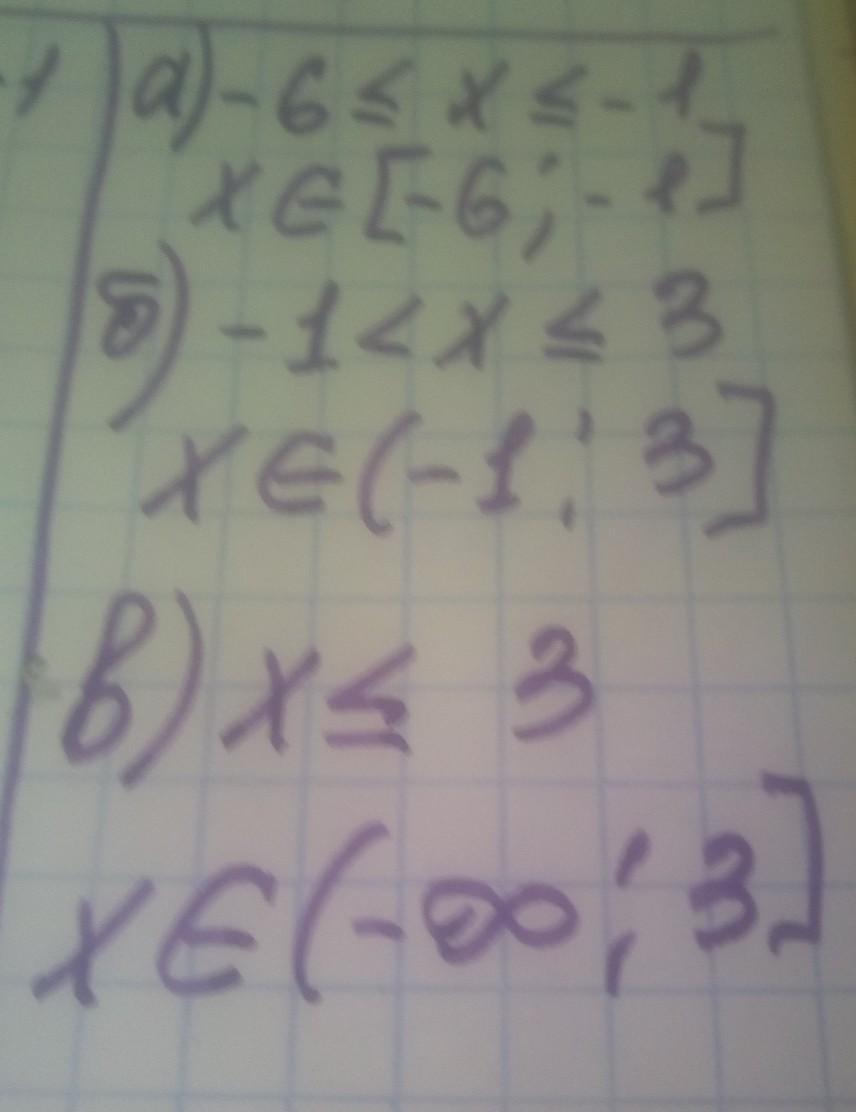 1 а) -6 ≤ x ≤ -1
x ∈ [-6; -1]
б) -1 < x ≤ 3
x ∈ (-1; 3]
в) x ≤ 3
x ∈ (-∞; 3]